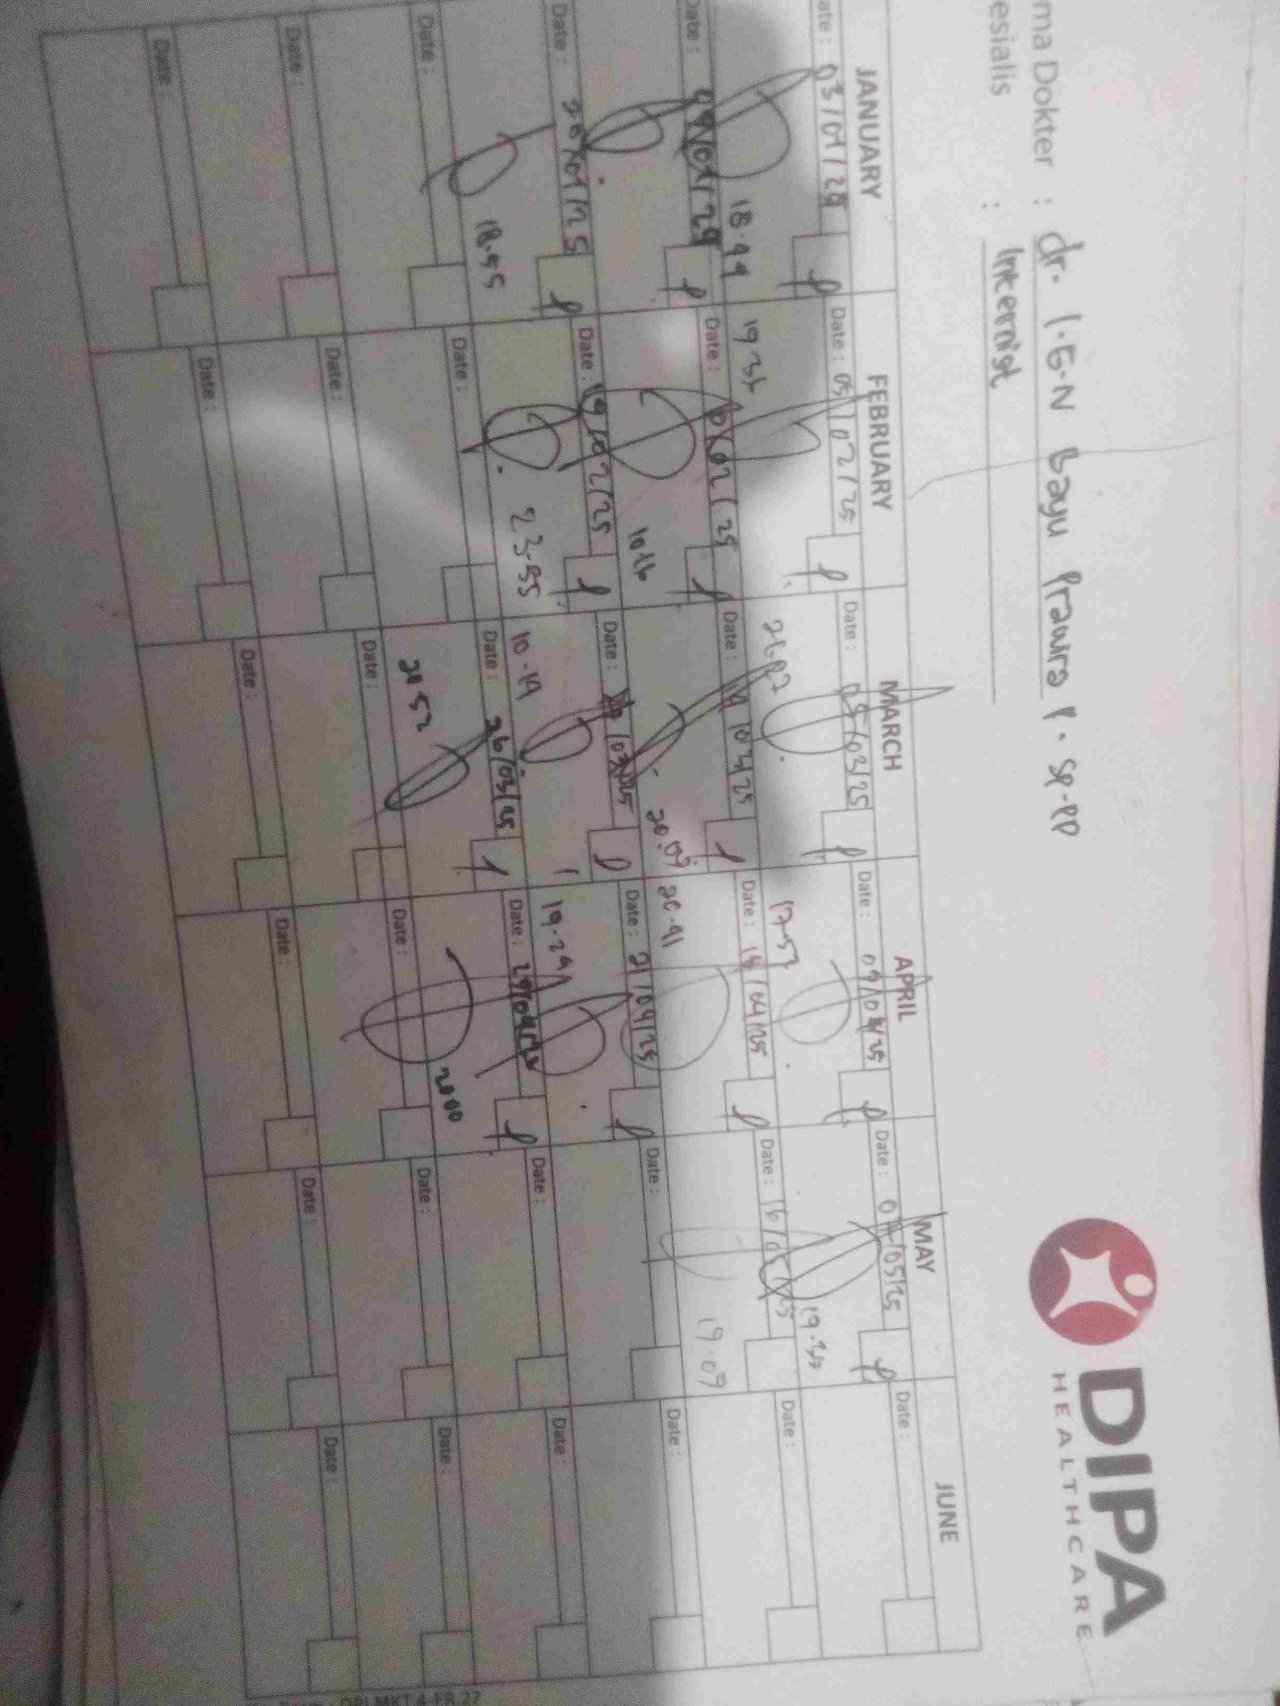 DIPA
HEALTHCARE
ma Dokter : dr. I.G.N Bayu Prawira P. SP-PD
esialis : Internist
JANUARY FEBRUARY MARCH APRIL MAY JUNE
ate : 03/01/25 Date : 05/02/25 Date : 05/03/25 Date : 09/04/25 Date : 07/05/25 Date :
18.44 19.35 17.53 19.30
Date : /01/25 Date : /02/25 Date : 14/03/25 Date : 14/04/25 Date : 16/05/25 Date :
10.16 20.09 20.41 19.09
Date : 20/01/25 Date : 19/02/25 Date : /03/25 Date : 21/04/25 Date : Date :
18.55 23.55 10.19 19.29
Date : Date : Date : 26/03/25 Date : 29/04/25 Date : Date :
20 52 2000
Date : Date : Date : Date : Date : Date :
Date : Date : Date : Date : Date : Date :
: DPI.MKT.4-FR.27